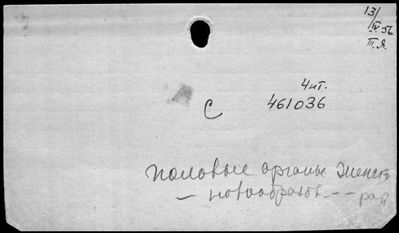 13/IV 56
П.Я.
4 ит.
С 461036
половые органы женск
— новообразов. — — рак